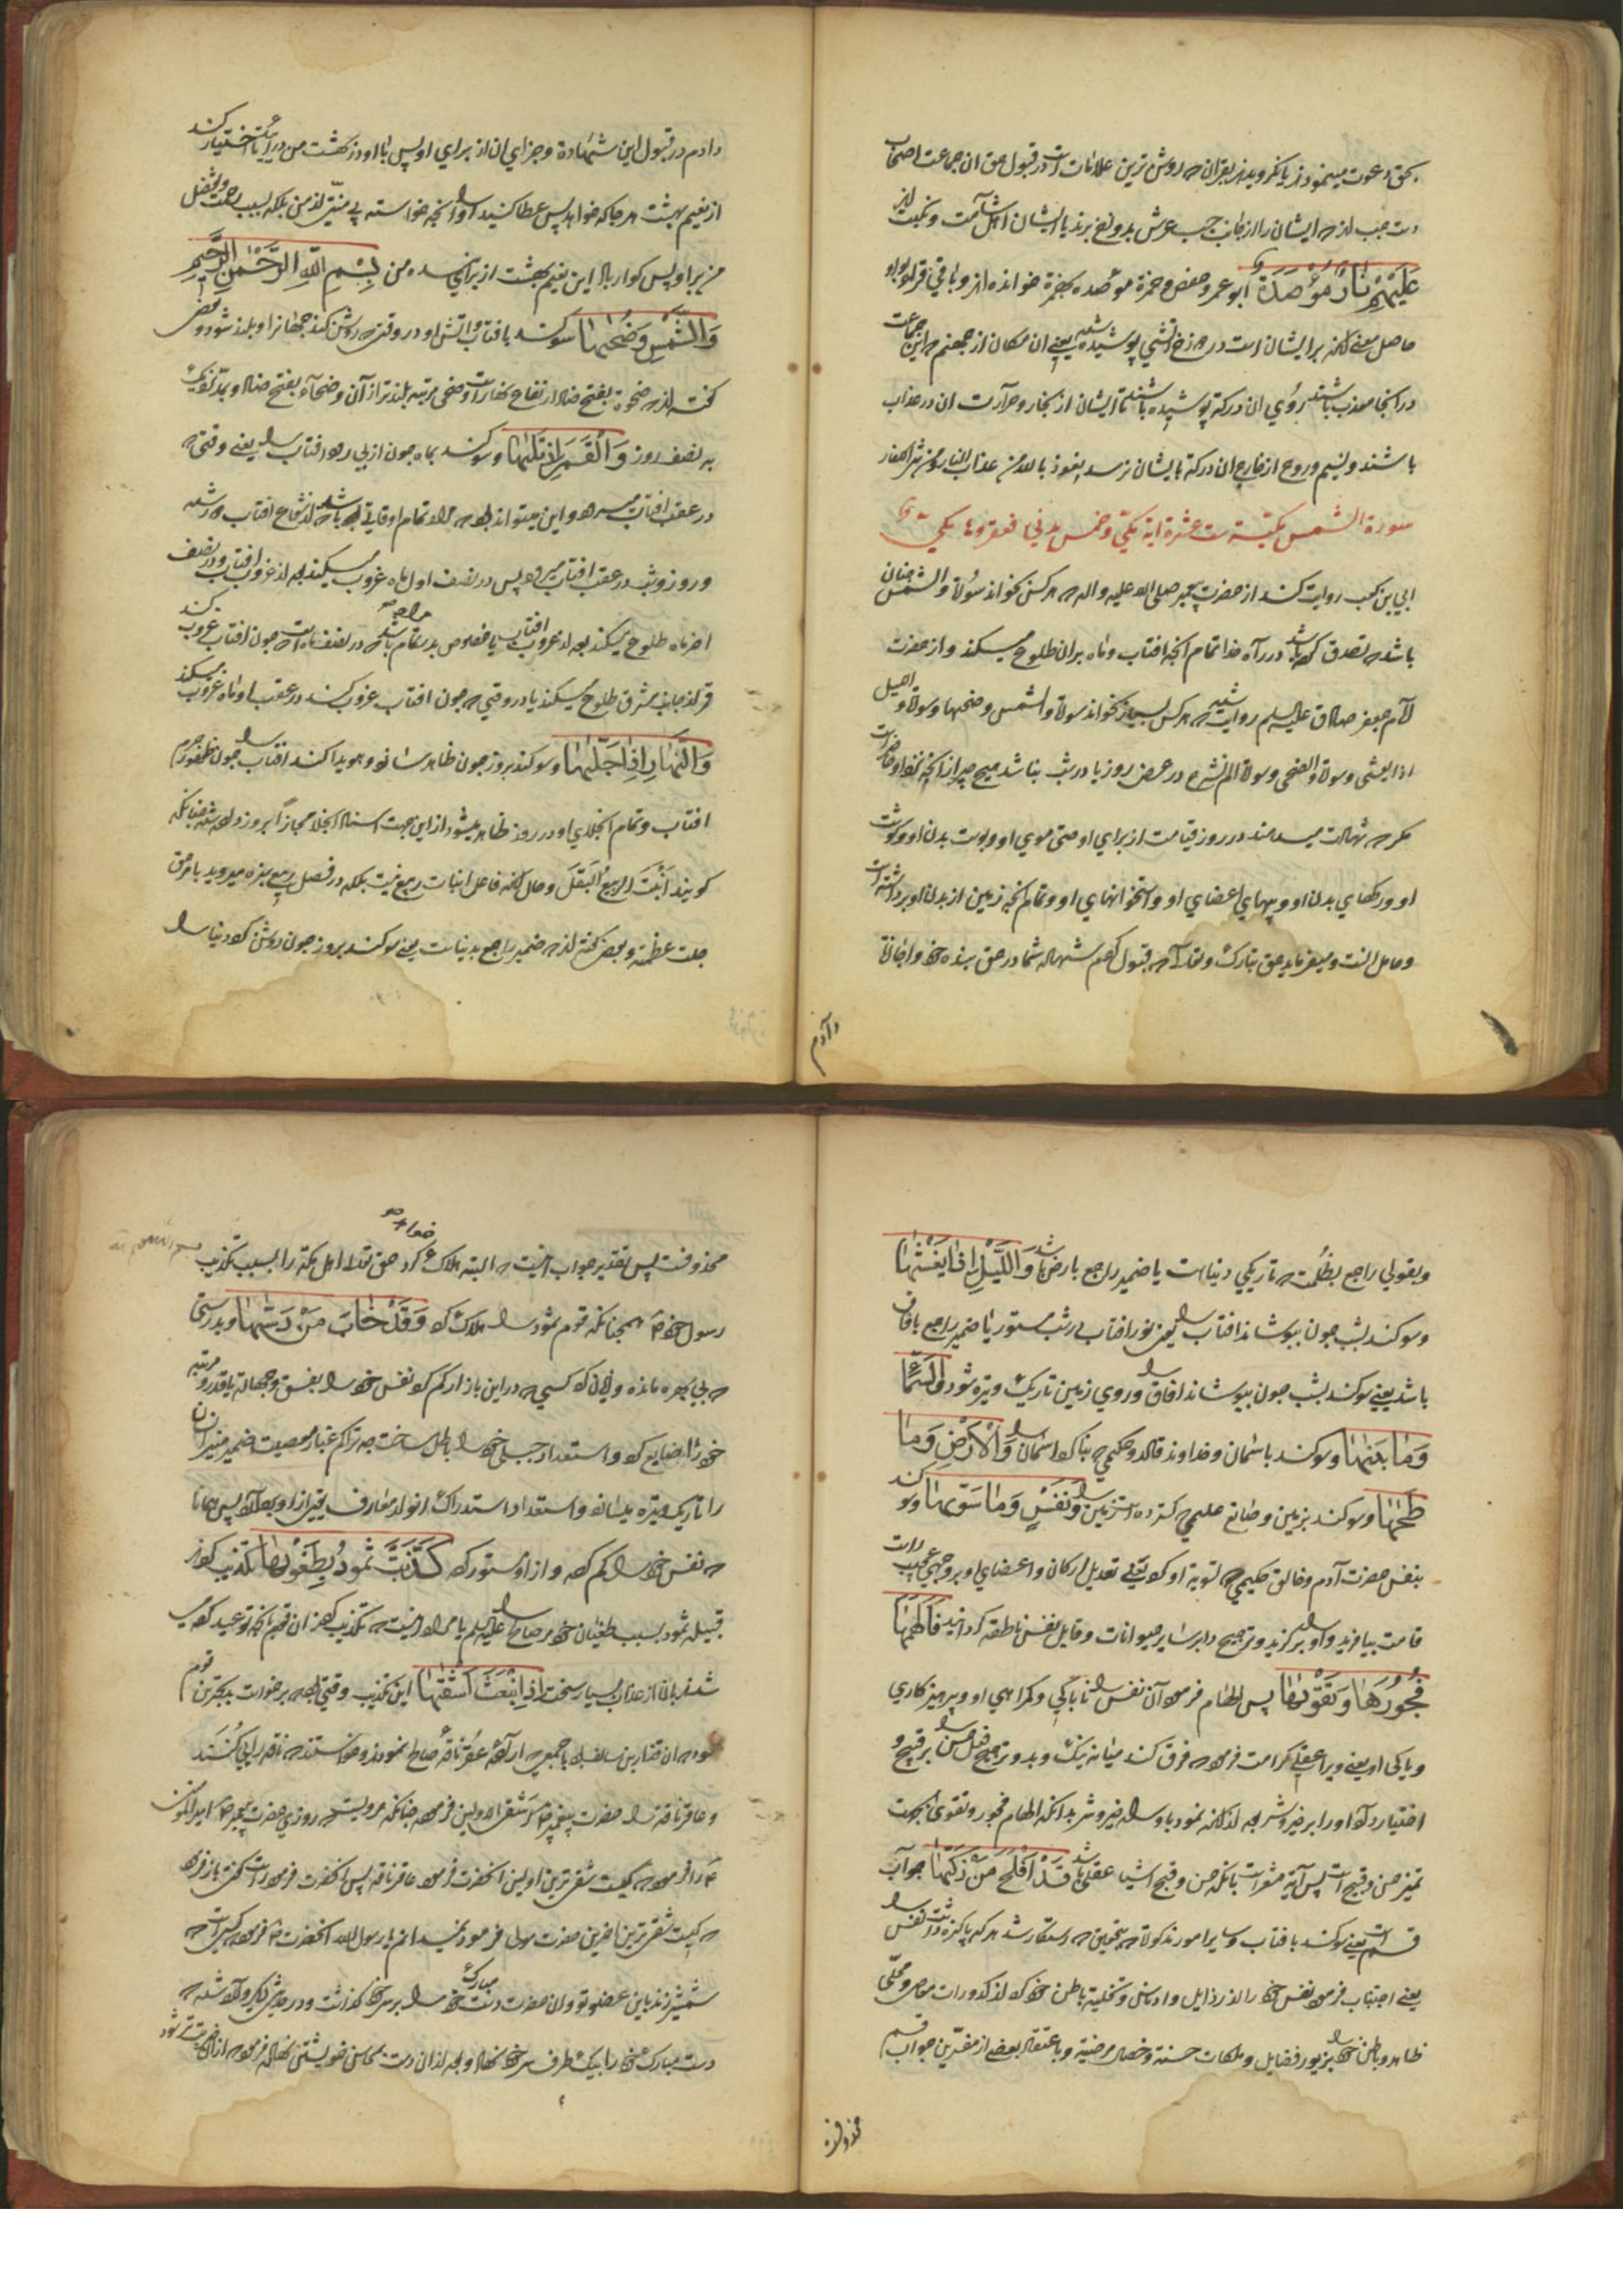 بحق دعوت مینمودند یا نکرویدند بقران که روشن ترین علامات است در قبول حق ان جماعت اصحاب
دست چپ اند که ایشان را از جانب چپ عرش بدوزخ برند یا ایشان اهل شآمت و نکبت اند
عَلَیْهِمْ نَارٌ مُؤْصَدَةٌ ابو عمرو و حفص و حمزة موصده بهمزة خوانده اند و باقی قراء بواو
حاصل معنی انکه بر ایشان است در دوزخ اتشی پوشیده شده یعنی ان مکان از جهنم که این جماعت
در انجا معذب باشند روی ان درکه پوشیده باشد تا ایشان از بخار و حرارت ان در عذاب
باشند و نسیم و روح از خارج ان درکه بایشان نرسد نعوذ بالله من عذاب النار و من شر الکفار
سورة الشمس مکیة ست عشرة ایة مکی و خمس مدنی
ابی بن کعب روایت کند از حضرت پیغمبر صلی الله علیه واله که هر کس بخواند سورة والشمس چنان
باشد که تصدق کرده باشد در راه خدا تمام انچه افتاب و ماه بران طلوع میکند و از حضرت
امام جعفر صادق علیه السلم روایت شده که هر کس بسیار بخواند سورة والشمس وضحیها و سورة واللیل
اذا یغشی و سورة والضحی و سورة الم نشرح در عرض روز یا در شب نباشد هیچ چیز از انچه نزد او حاضر است
مکر که شهادت میدهند در روز قیامت از برای او حتی موی او و پوست بدن او و کوشت
او و رکهای بدن او و پیهای اعضای او و استخوانهای او و تمام انچه زمین از بدن او برداشته است
و حامل انست و میفرماید حق تبارک وتعالی که قبول کردم شهادت شما در حق بنده خود و اجازة
دادم
دادم در قبول این شهادة و جزای ان از برای او پس با او در بهشت من در ایید تا اختیار کند
از نعیم بهشت هر جا که خواهد پس عطا کنید او را انچه خواسته بی منتی از من بلکه بسبب رحمت و فضل
من بر او پس کوارا باد این نعیم بهشت از برای بنده من بِسْمِ اللَّهِ الرَّحْمٰنِ الرَّحِیمِ
وَالشَّمْسِ وَضُحٰیهَا سوکند بافتاب و تابش او در وقتی که روشن کند جهانرا و بلند شود و بعضی
کفته اند که ضحوة بفتح ضاد ارتفاع نهار است و ضحی مرتبه بلند تر از آن و ضحآء بفتح ضاد و مد نزدیک
به نصف روز وَالْقَمَرِ اِذَا تَلٰیهَا و سوکند بماه چون از پی رود افتاب را یعنی وقتی که
در عقب افتاب میرود و این میتواند بود که مراد تمام اوقات
و روز و شب در عقب افتاب میرود پس در نصف اول ماه غروب میکند بعد از غروب افتاب و در نصف
اخر ماه طلوع میکند بعد از غروب افتاب یا مخصوص بدر تمام باشد که در نصف ماه است که چون افتاب غروب کند
قمر از جانب مشرق طلوع میکند یا در وقتی که چون افتاب غروب کند در عقب او ماه غروب میکند
وَالنَّهَارِ اِذَا جَلّٰیهَا و سوکند بروز چون ظاهر سازد و هویدا کند افتاب را چون ظهور جرم
افتاب و تمام انجلای او در روز ظاهر میشود از این جهت اسناد انجلا مجازاً بروز داده شد چنانکه
کویند اَنْبَتَ الرَّبِیعُ الْبَقْلَ و حال انکه فاعل انبات ربیع نیست بلکه در فصل ربیع سبزه میروید بامر حق
جلت عظمته و بعضی کفته اند که ضمیر راجع بدنیاست یعنی سوکند بروز چون روشن کرد دنیا را
و بقولی راجع بظُلمت که تاریکی دنیاست یا ضمیر راجع بارض باشد وَاللَّیْلِ اِذَا یَغْشٰیهَا
و سوکند بشب چون بپوشاند افتاب را یعنی نور افتاب در شب مستور یا ضمیر راجع بافاق
باشد یعنی سوکند بشب چون بپوشاند افاق را و روی زمین تاریک و تیره شود وَالسَّمَآءِ
وَمَا بَنٰیهَا و سوکند باسمان و خداوند قادر و حکیمی که بنا کرد اسمان را وَالْاَرْضِ وَمَا
طَحٰیهَا و سوکند بزمین و صانع علیمی که کسترده است زمین را وَنَفْسٍ وَمَا سَوّٰیهَا و سوکند
بنفس حضرت آدم و خالق حکیمی که تسویه او کرد یعنی تعدیل ارکان و اعضای او بر وجهی عجیب
قامت بیافرید و او را برکزید و ترجیح داد بر سایر حیوانات و قابل نفس ناطقه کردانید فَاَلْهَمَهَا
فُجُورَهَا وَتَقْوٰیهَا پس الهام فرمود آن نفس را ناپاکی و کمراهی او و پرهیزکاری
و پاکی او یعنی ویرا عقلی کرامت فرمود که فرق کند میانه نیک و بد و ترجیح فعل حسن را بر قبیح و
اختیار داد او را بر خیر و شر
تمیز حسن و قبیح است پس آیة مشعر است بانکه حسن و قبح اشیا عقلی باشد قَدْ اَفْلَحَ مَنْ زَکّٰیهَا جواب
قسم است یعنی سوکند بافتاب و سایر امور مذکوره که بتحقیق که رستکار شد هر که پاکیزه داشت نفس را
یعنی اجتناب فرمود نفس خود را از رذایل و ادناس و تخلیه باطن خود کرد از کدورات معاصی و محلّی
ظاهر و باطن خود را بزیور فضایل و ملکات حسنه و خصال مرضیة و باعتقاد بعضی از مفسرین جواب قسم
محذوفست
محذوفست پس تقدیر جواب انیست که البته هلاک خواهد کرد حق تعالی اهل مکه را بسبب تکذیب
رسول خود همچنانکه قوم ثمود را هلاک کرد وَقَدْ خَابَ مَنْ دَسّٰیهَا و بدرستی
که بی بهره مانده و زیان کرد کسی که در این بازار کم کرد نفس خود را بفسق و جهالة یا قدر و مرتبه
خود را ضایع کرد و استعداد جبلی خود را باطل ساخت چه تراکم غبار معصیت ضمیر منیر انسان
را تاریک و تیره میسازد و استعداد استدراک انوار معارف یقین از او پس همانا
که نفس خود را کم کرد و از او مستور کرد کَذَّبَتْ ثَمُودُ بِطَغْوٰیهَا تکذیب کردند
قبیله ثمود بسبب طغیان خود مر صالح را علیه السلم یا مراد انیست که تکذیب کردند ان قوم بانچه توعید کرده
شدند بان از عذاب بسیار سخت اِذِ انْبَعَثَ اَشْقٰیهَا این تکذیب وقتی بود که برخواست بدبخت ترین قوم
ثمود که ان قدار بن سالف بود با جمعی که اراده عقر ناقه صالح نمودند و خواستند که ناقه را پی کُنَند
و عاقر ناقه را حضرت پیغمبر اشقی الاولین فرمود چنانکه مرویست که روزی حضرت پیغمبر امیر المومنین
را فرمود که کیست شقی ترین اولین انحضرت فرمود عاقر ناقه پس انحضرت فرمود راست کفتی باز فرمود
که کیست شقی ترین اخرین حضرت مولی فرمود نمیدانم یا رسول الله انحضرت فرمود کسی است که
شمشیر زند باین عضو تو و ان حضرت دست مبارک خود را بر سر خود کذاشت و در حدیث دیکر وارد شده که
دست مبارک خود را بیک طرف سر خود نهاد و بعد از ان دست بمحاسن خویشتن نهاده فرمود که از ان ضربت تر شود